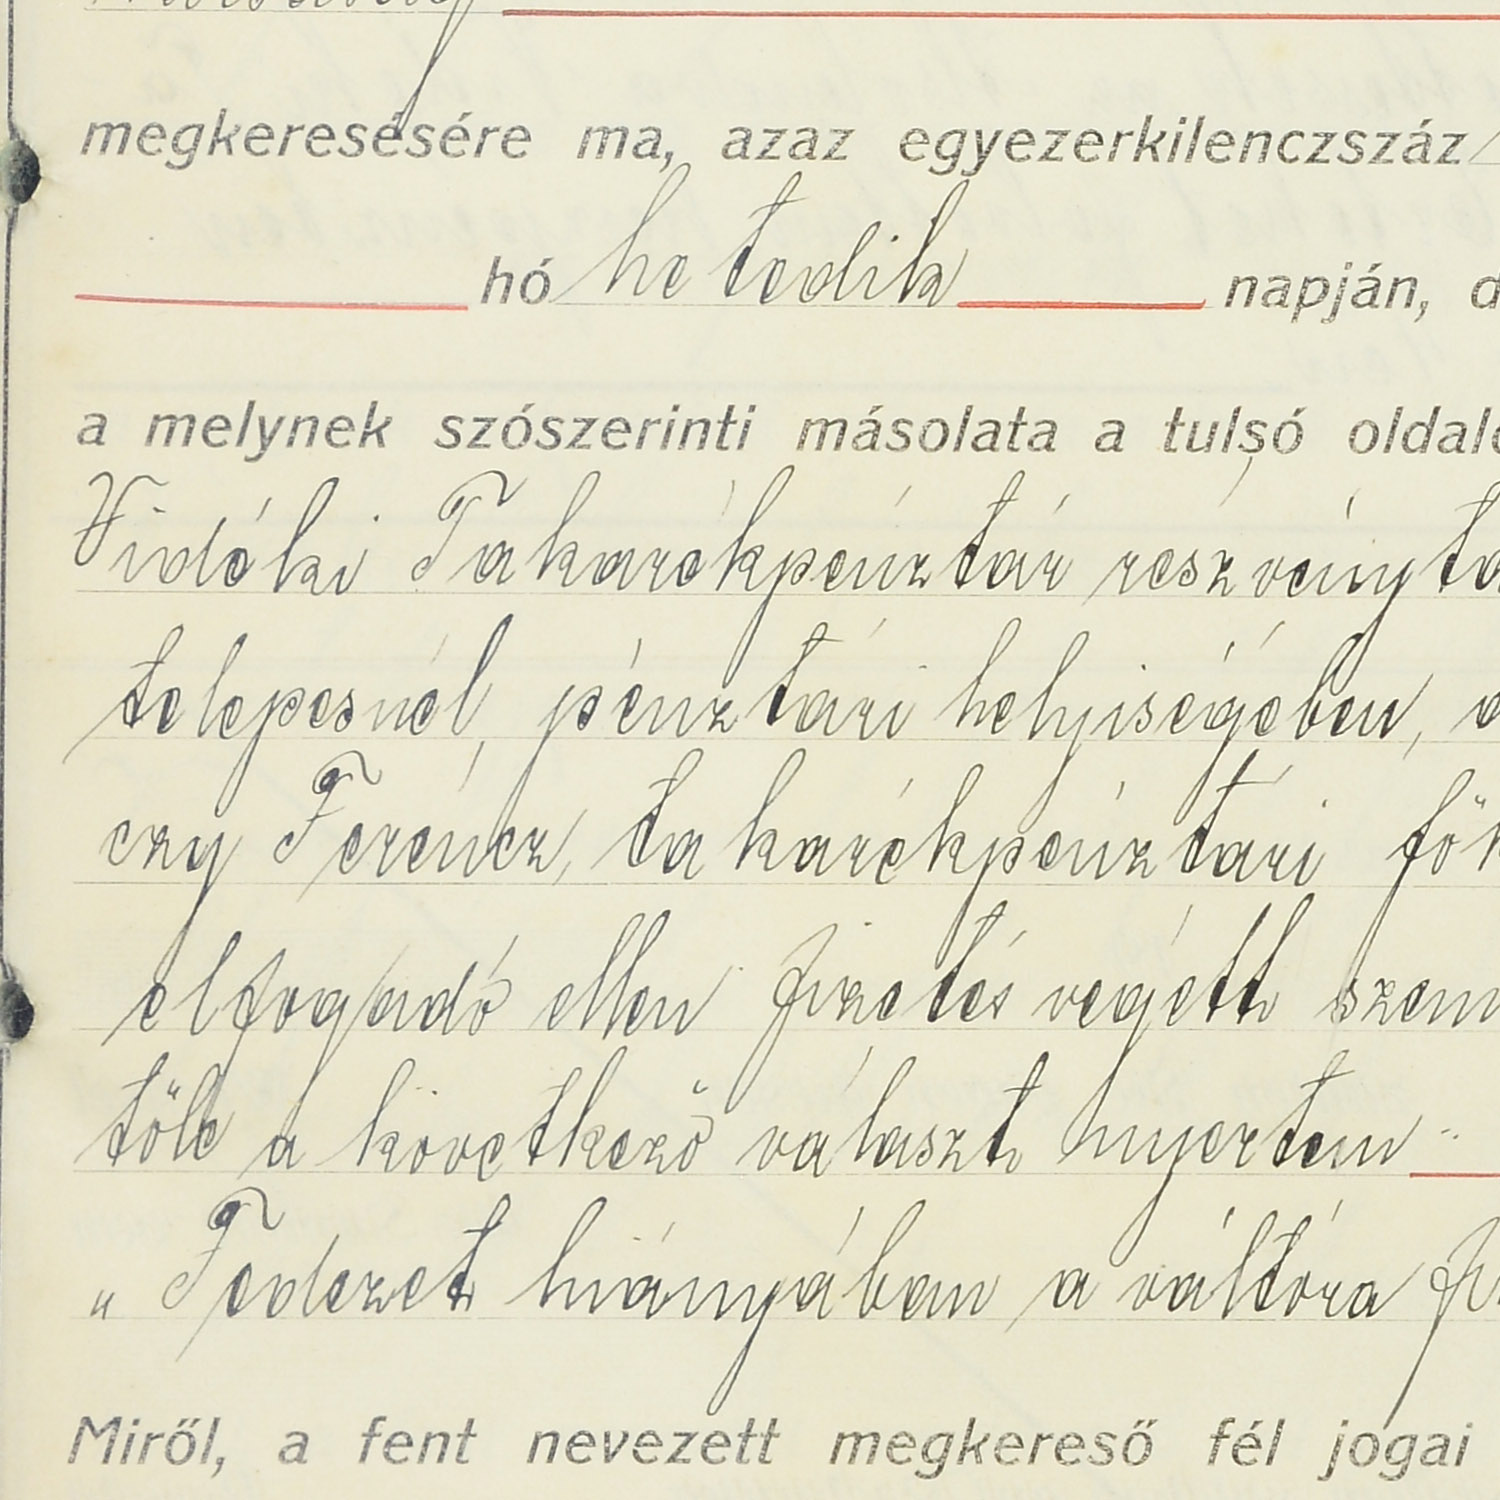 megkeresésére ma, azaz egyezerkilenczszáz
hó hetedik napján, d
a melynek szószerinti másolata a tulsó oldalo
Vidéki Takarékpénztár részvényta
telepesnél, pénztári helyiségében, a
czy Ferencz, takarékpénztári fők
elfogadó ellen fizetés végett szem
tőle a következő választ nyertem:
„Fedezet hiányában a váltóra fi
Miről, a fent nevezett megkereső fél jogai